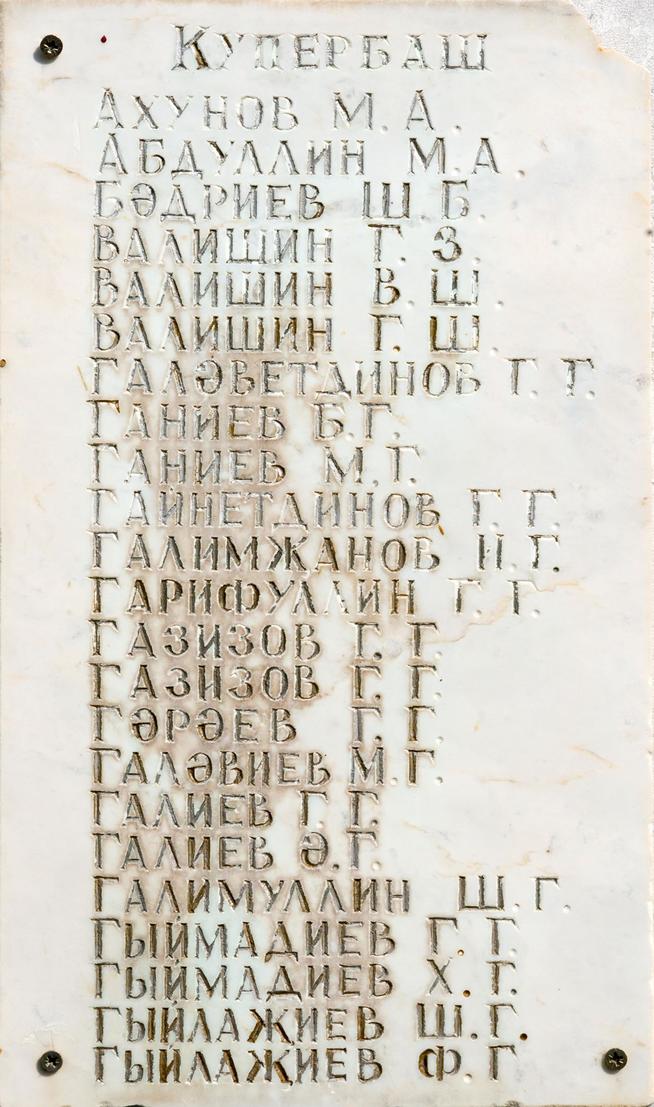 Купербаш
Ахунов М. А.
Абдуллин М. А.
Бәдриев Ш. Б.
Валишин Г. З.
Валишин В. Ш.
Валишин Г. Ш.
Галәветдинов Г. Г.
Ганиев Б. Г.
Ганиев М. Г.
Гайнетдинов Г. Г.
Галимжанов И. Г.
Гарифуллин Г. Г.
Газизов Г. Г.
Газизов Г. Г.
Гәрәев Г. Г.
Галәвиев М. Г.
Галиев Г. Г.
Галиев Ә. Г.
Галимуллин Ш. Г.
Гыймадиев Г. Г.
Гыймадиев Х. Г.
Гыйлажиев Ш. Г.
Гыйлажиев Ф. Г